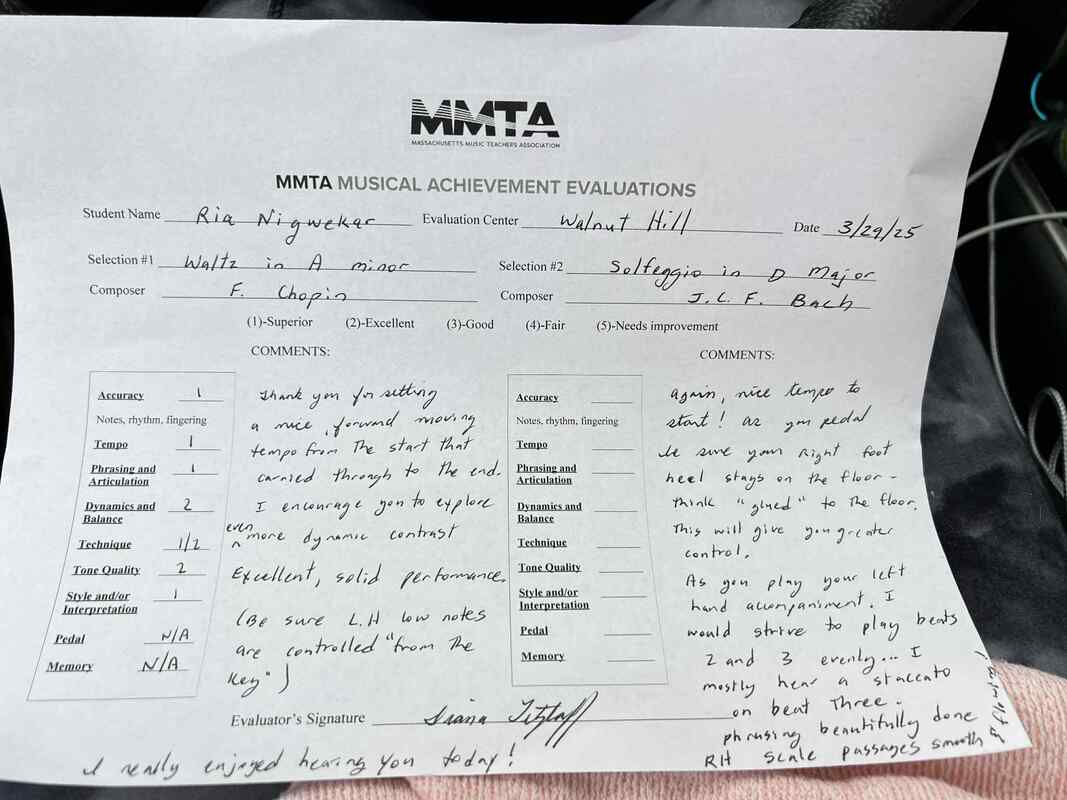 MMTA
MASSACHUSETTS MUSIC TEACHERS ASSOCIATION
MMTA MUSICAL ACHIEVEMENT EVALUATIONS
Student Name Ria Nigwekar Evaluation Center Walnut Hill Date 3/29/25
Selection #1 Waltz in A minor Selection #2 Solfeggio in D Major
Composer F. Chopin Composer J.C.F. Bach
(1)-Superior (2)-Excellent (3)-Good (4)-Fair (5)-Needs improvement
COMMENTS:
Accuracy 1
Notes, rhythm, fingering
Tempo 1
Phrasing and
Articulation 1
Dynamics and
Balance 2
Technique 1/2
Tone Quality 2
Style and/or
Interpretation 1
Pedal N/A
Memory N/A
Thank you for setting
a nice, forward moving
tempo from the start that
carried through to the end.
I encourage you to explore
even more dynamic contrast
Excellent, solid performance.
(Be sure L.H low notes
are controlled "from the
key")
COMMENTS:
Accuracy
Notes, rhythm, fingering
Tempo
Phrasing and
Articulation
Dynamics and
Balance
Technique
Tone Quality
Style and/or
Interpretation
Pedal
Memory
Again, nice tempo to
start! as you pedal
be sure your right foot
heel stays on the floor -
think "glued" to the floor.
This will give you greater
control.
As you play your left
hand accompaniment. I
would strive to play beats
2 and 3 evenly... I
mostly hear a staccato
on beat three.
phrasing beautifully done
RH scale passages smooth
Evaluator's Signature
I really enjoyed hearing you today!